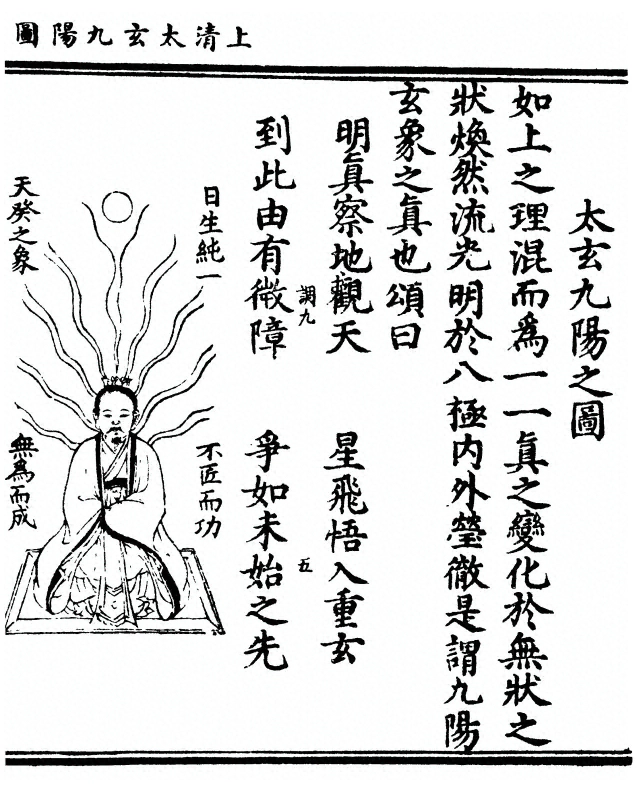 上清太玄九陽圖
太玄九陽之圖
如上之理混而爲一一眞之變化於無狀之
狀煥然流光明於八極内外瑩徹是謂九陽
玄象之眞也頌曰
明眞察地觀天 星飛悟入重玄
調九 五
到此由有微障 爭如未始之先
日生純一
不匠而功
天癸之象
無爲而成